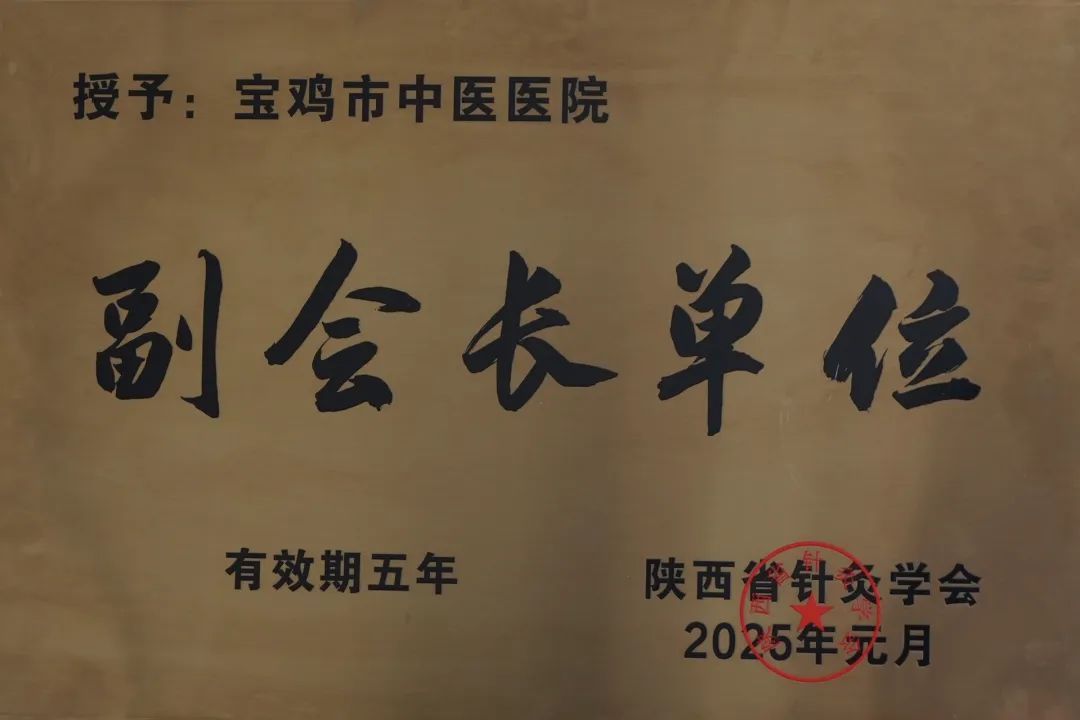 授予：宝鸡市中医医院
副会长单位
有效期五年
陕西省针灸学会
2025年元月